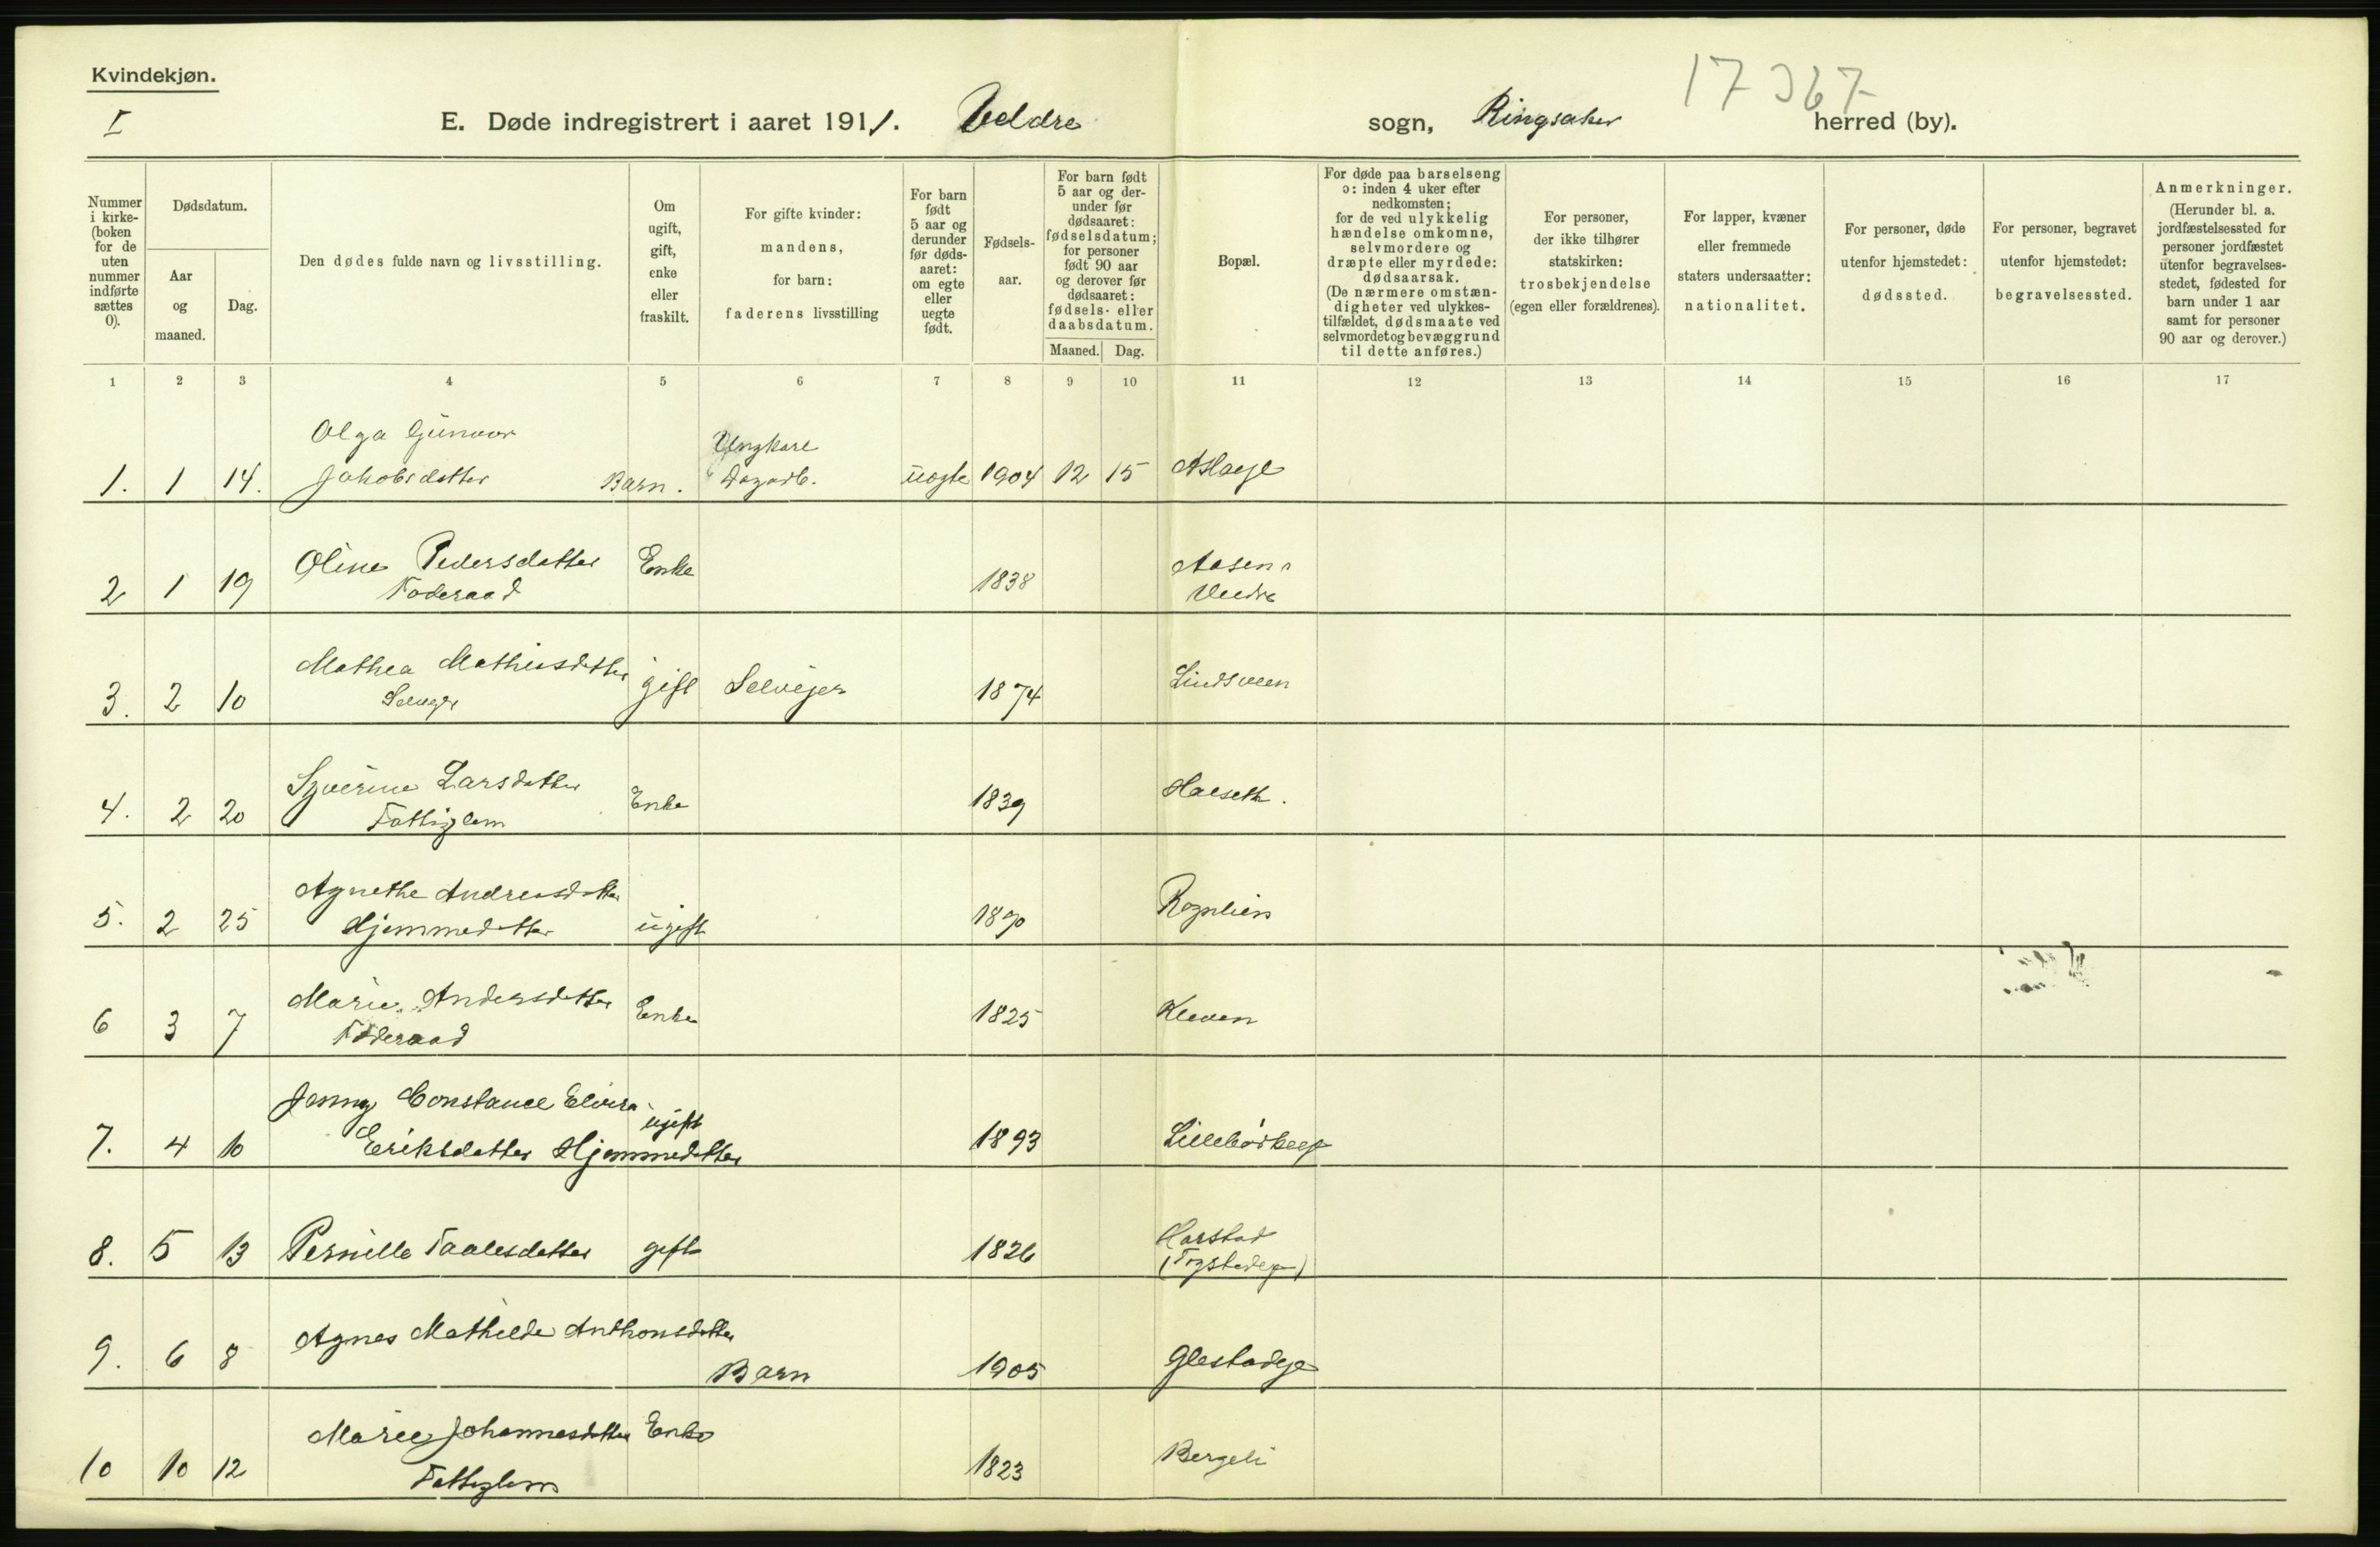 Kvindekjøn.
I
17 367
E. Døde indregistrert i aaret 1911. Veldre sogn, Ringsaker herred (by).
Nummer i kirke- (boken for de uten nummer indførte sættes 0).
Dødsdatum.
Aar og maaned.
Dag.
Den dødes fulde navn og livsstilling.
Om ugift, gift, enke eller fraskilt.
For gifte kvinder: mandens, for barn: faderens livsstilling
For barn født 5 aar og derunder før døds- aaret: om egte eller uegte født.
Fødsels- aar.
For barn født 5 aar og der- under før dødsaaret: fødselsdatum; for personer født 90 aar og derover før dødsaaret: fødsels- eller daabsdatum.
Maaned. Dag.
Bopæl.
For døde paa barselseng ɔ: inden 4 uker efter nedkomsten; for de ved ulykkelig hændelse omkomne, selvmordere og dræpte eller myrdede: dødsaarsak. (De nærmere omstæn- digheter ved ulykkes- tilfældet, dødsmaate ved selvmordet og bevæggrund til dette anføres.)
For personer, der ikke tilhører statskirken: trosbekjendelse (egen eller forældrenes).
For lapper, kvæner eller fremmede staters undersaatter: nationalitet.
For personer, døde utenfor hjemstedet: dødssted.
For personer, begravet utenfor hjemstedet: begravelsessted.
Anmerkninger. (Herunder bl. a. jordfæstelsessted for personer jordfæstet utenfor begravelses- stedet, fødested for barn under 1 aar samt for personer 90 aar og derover.)
1 2 3 4 5 6 7 8 9 10 11 12 13 14 15 16 17
Olga Gunvor Ungkarl
1. 1 14. Jakobsdatter Barn. Dagarb. uegte 1904 12 15
Oline Pedersdatter Enke Aasen
2 1 19 Føderaad 1838
Mathea Mathiasdatter
3. 2 10 Selveier gift Selveier 1874 Lindsveen
Syverine Larsdatter
4. 2 20 Fattiglem Enke 1839 Halseth.
Agnethe Andreasdatter
5. 2 25 Hjemmedatter ugift 1890 Rognlien
Marie Andersdatter
6 3 7 Føderaad Enke 1825 Kleven
Jenny Constance Elvira ugift
7. 4 10 Eriksdatter Hjemmedatter 1893
Harstad
8. 5 13 Pernille Taalesdatter gift 1826
Agnes Mathilde Anthonsdatter
9. 6 8 Barn 1905 Glestadeje
Marie Johannesdatter Enke
10 10 12 Fattiglem 1823 Bergeli